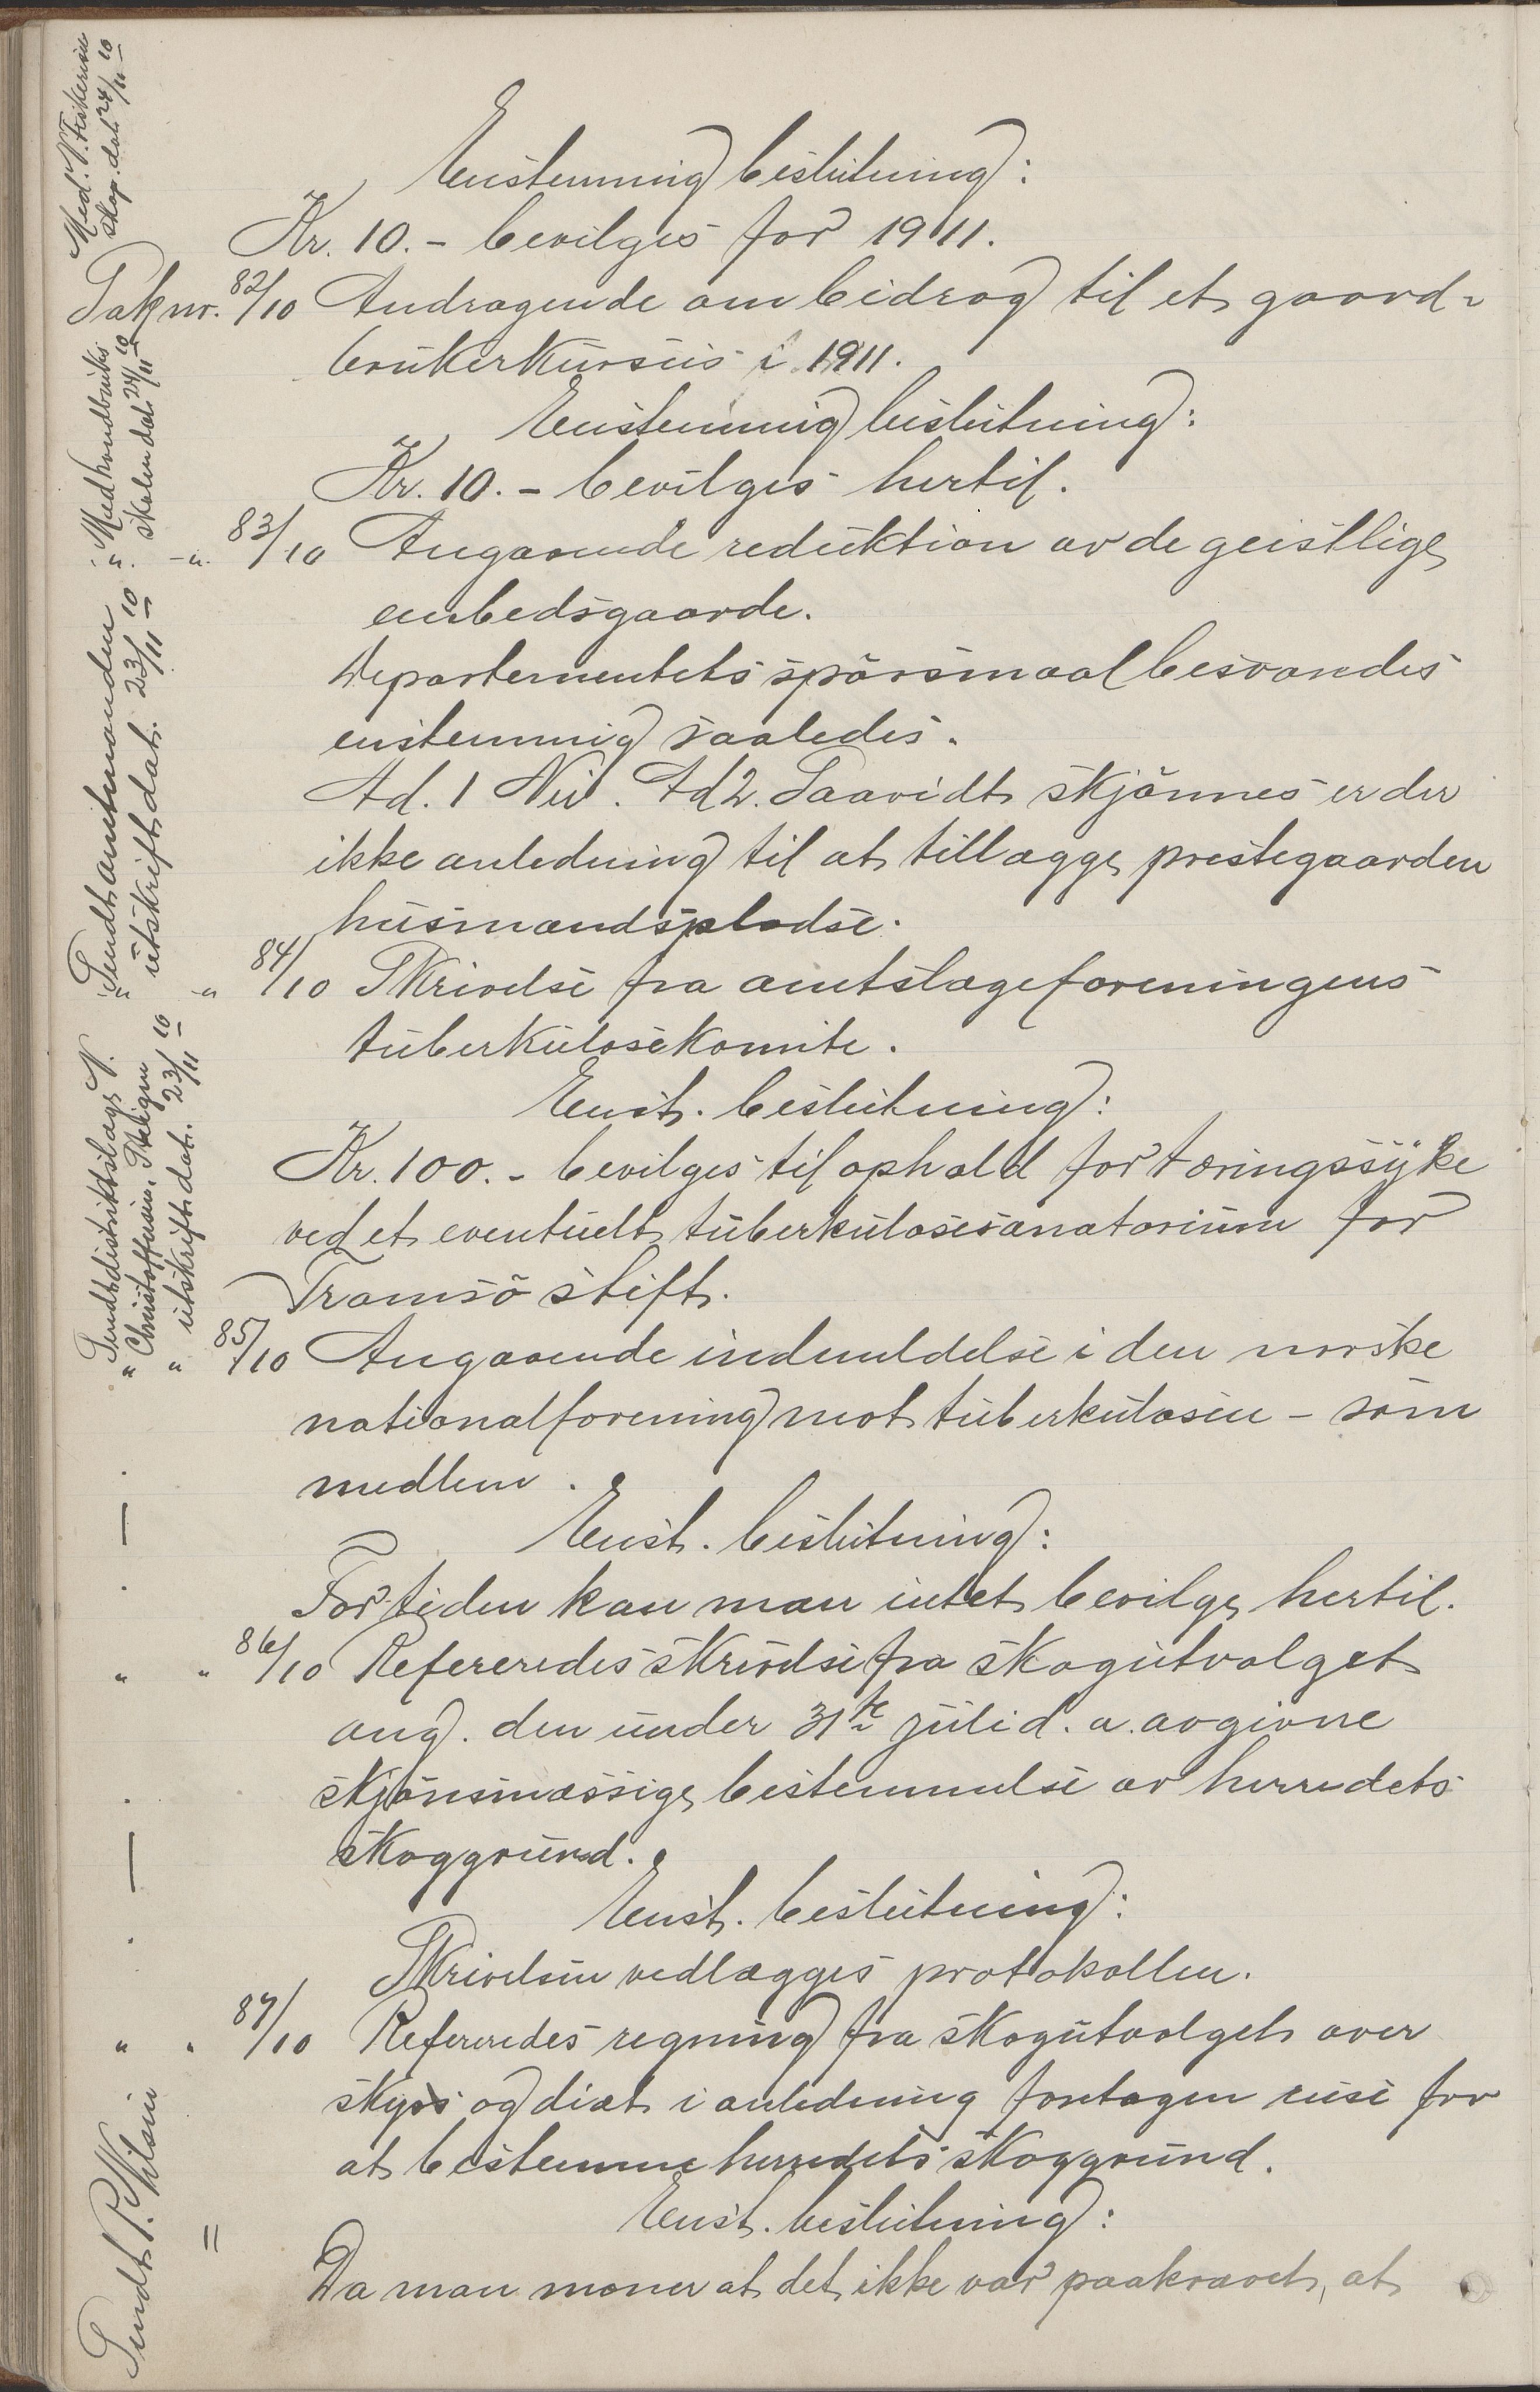 Enstemmig beslutning:
Kr. 10.- bevilges for 1911.
Sak nr. 82/10 Andragende om bidrag til et gaard-
brukerkursus i 1911.
Enstemmig beslutning:
Kr. 10.- bevilges hertil.
-"- 83/10 Angaaende reduktion av de geistlige
embedsgaarde.
Departementets spörsmaal besvaredes
enstemmig saaledes.
Ad. 1 Nei. Ad 2. Saavidt skjönnes er der
ikke anledning til at tillægge prestegaarden
husmandspladse.
" " 84/10 Skrivelse fra amtslægeforeningens
tuberkulosekomite.
Enst. beslutning:
Kr. 100.- bevilges til ophold for tæringssyke
ved et eventuelt tuberkulosesanatorium for
Tromsö stift.
" " 85/10 Angaaende indmeldelse i den norske
nationalforening mot tuberkulosen - som
medlem.
Enst. beslutning:
For tiden kan man intet bevilge hertil.
" " 86/10 Refereredes skrivelse fra skogutvalget
ang. den under 31te juli d. a. avgivne
skjönsmæssige bestemmelse av herredets
skoggrund.
Enst. beslutning:
Skrivelsen vedlægges protokollen.
" " 87/10 Refereredes regning fra skogutvalget over
skyss og diæt i anledning foretagen reise for
at bestemme herredets skoggrund.
Enst. beslutning:
Da man mener at det ikke var paakrævet, at
Med. N. Fiskerisel
skap. dat. 24/11 10
Med haandbruks
skolen dat. 24/11 10
Sendt amtmanden
utskrift dat. 23/11 10
Sendt distriktslæge N.
Christoffersen, Skligen
utskrift dat. 23/11 10
Sendt P. Nilsen
=